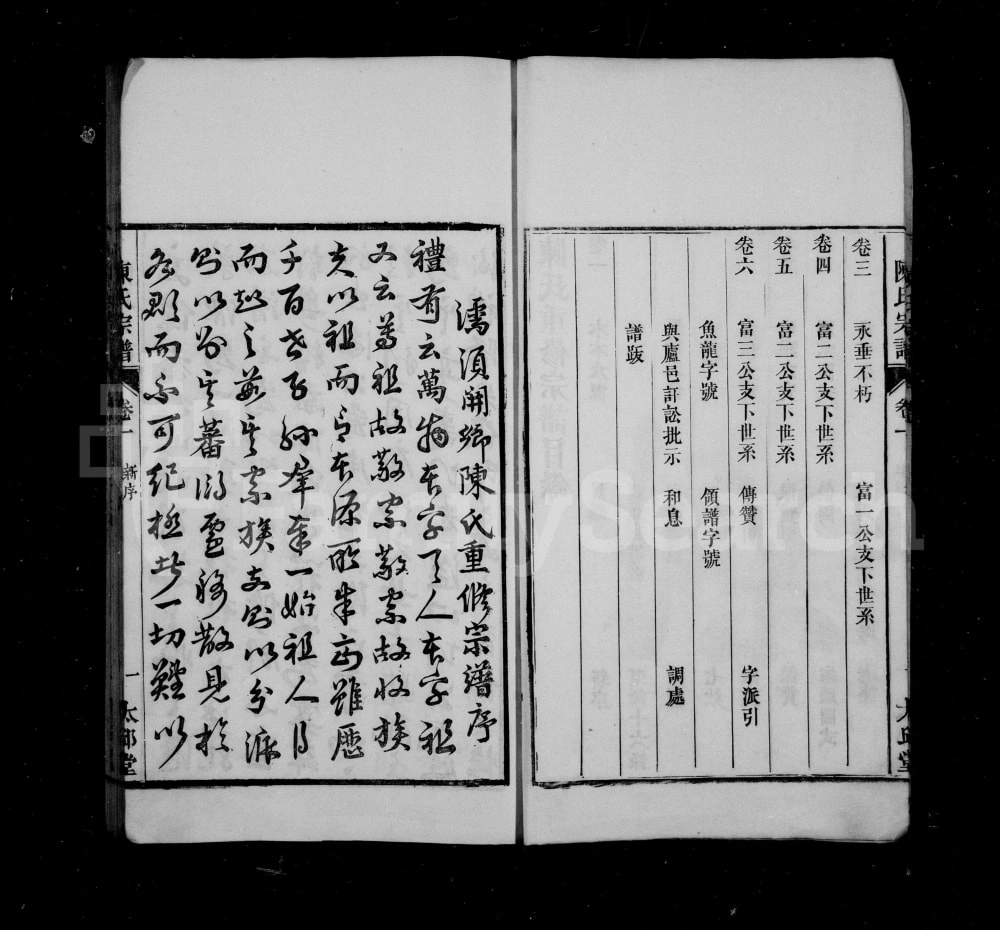 陳氏宗譜 卷一 太邱堂
卷三 永垂不朽 富一公支下世系
卷四 富二公支下世系
卷五 富二公支下世系
卷六 富三公支下世系 傳贊 字派引
魚龍字號 領譜字號
與廬邑訐訟批示 和息 調處
譜跋
濡須開鄉陳氏重修宗譜序
禮有云萬物本乎天人本乎祖
又云尊祖故敬宗敬宗故收族
夫以祖而言本源所集正雖歷
千百世子孫羣奉一始祖人得
而越之若其宗族支則以分派
則以別其蕃衍遷移散見於
各郡而不可紀極此一切難以
陳氏宗譜 卷一 新序 一 太邱堂